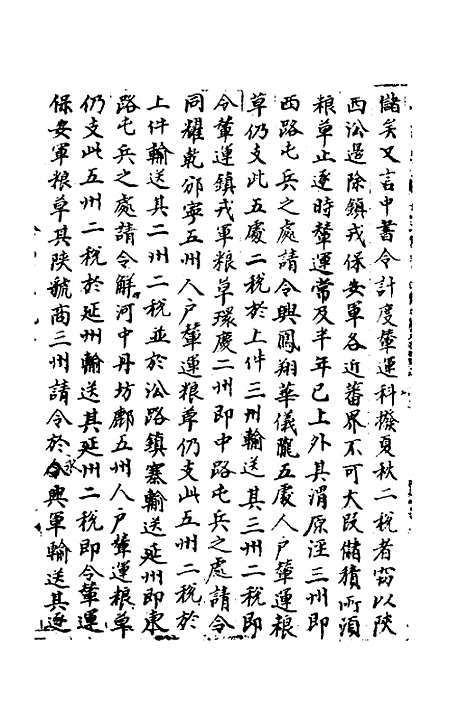 儲矣又言中書令計度輦運科撥夏秋二稅者竊以陝
西沿邊除鎮戎保安軍各近蕃界不可大段儲積所須
粮草止逐時輦運常及半年已上外其渭原涇三州即
西路屯兵之處請令興鳳翔華儀隴五處人戶輦運粮
草仍支此五處二稅於上件三州輸送其三州二稅即
令輦運鎮戎軍粮草環慶二州即中路屯兵之處請令
同耀乾邠寧五州人戶輦運粮草仍支此五州二稅於
上件輸送其二州二稅並於沿路鎮寨輸送延州即東
路屯兵之處請令解河中丹坊鄜五州人戶輦運粮草
仍支此五州二稅於延州輸送其延州二稅即令輦運
保安軍粮草其陝虢商三州請令於永興軍輸送其逐